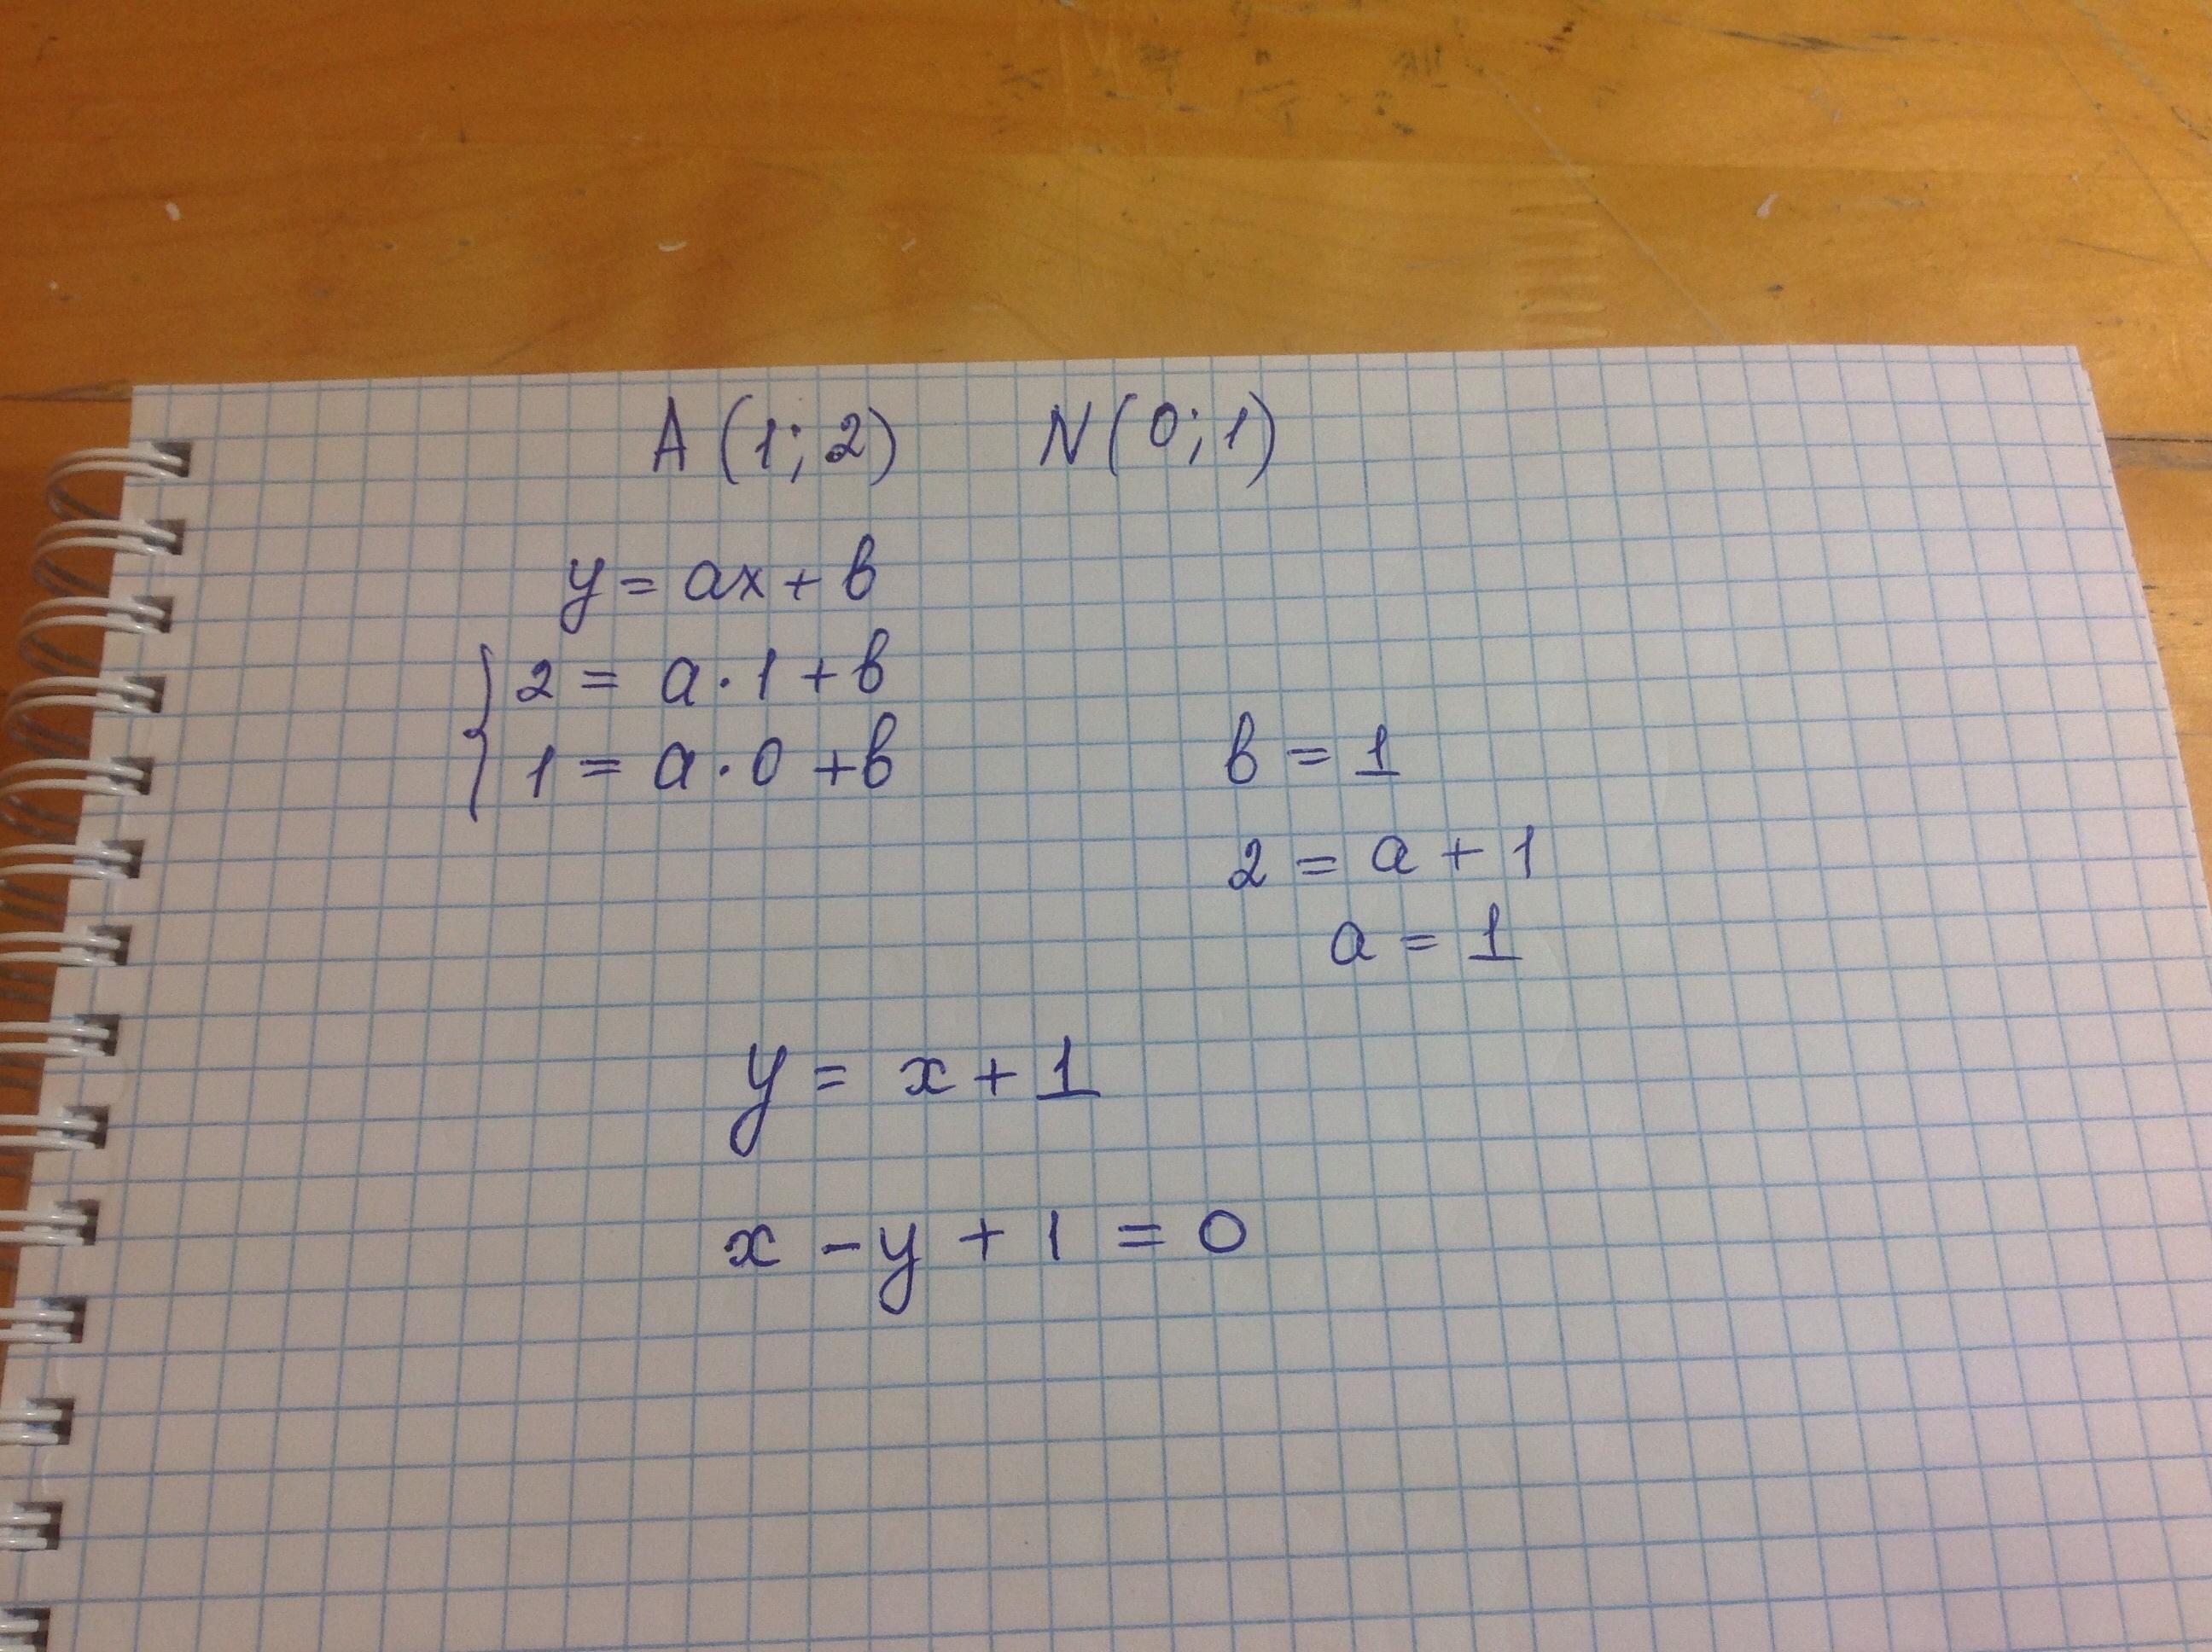 A (1; 2) N (0; 1)
y = ax + b
{ 2 = a · 1 + b
1 = a · 0 + b
b = 1
2 = a + 1
a = 1
y = x + 1
x - y + 1 = 0